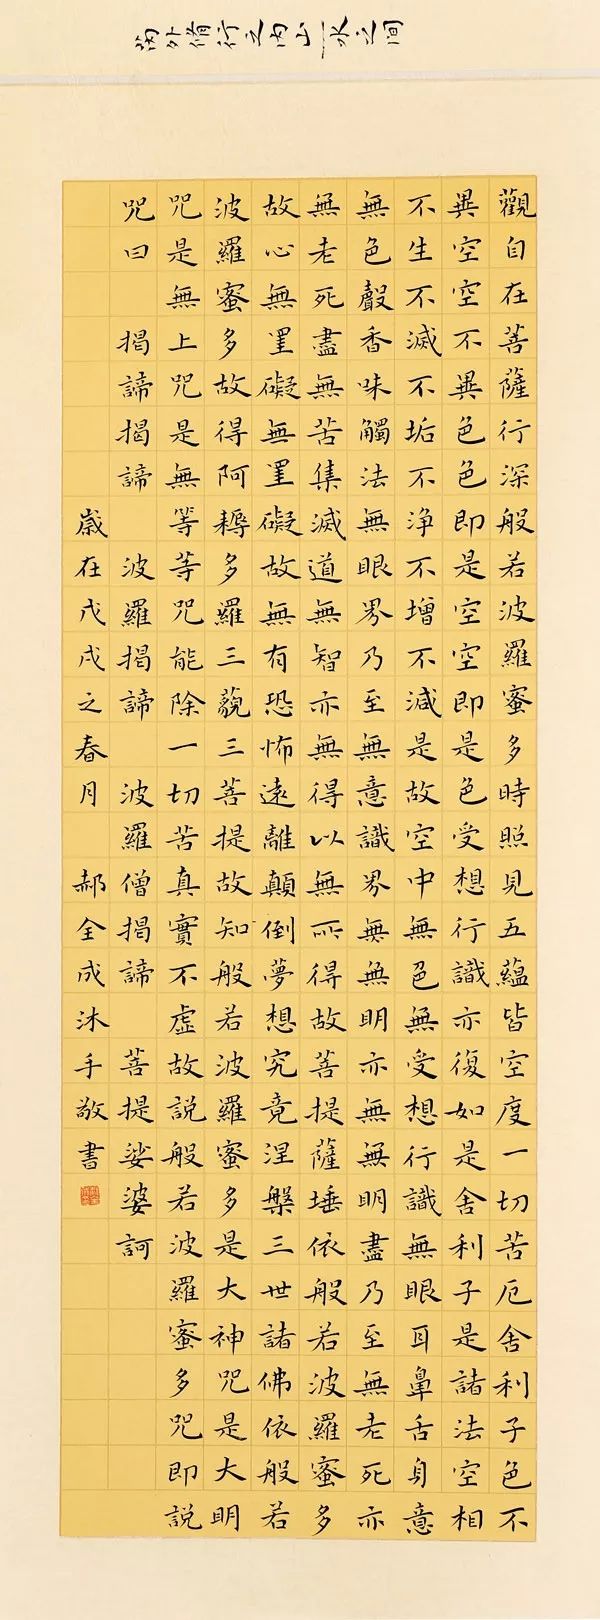 外脩行之内山水之间
觀自在菩薩行深般若波羅蜜多時照見五蘊皆空度一切苦厄舍利子色不
異空空不異色色即是空空即是色受想行識亦復如是舍利子是諸法空相
不生不滅不垢不淨不增不減是故空中無色無受想行識無眼耳鼻舌身意
無色聲香味觸法無眼界乃至無意識界無無明亦無無明盡乃至無老死亦
無老死盡無苦集滅道無智亦無得以無所得故菩提薩埵依般若波羅蜜多
故心無罣礙無罣礙故無有恐怖遠離顛倒夢想究竟涅槃三世諸佛依般若
波羅蜜多故得阿耨多羅三藐三菩提故知般若波羅蜜多是大神咒是大明
咒是無上咒是無等等咒能除一切苦真實不虛故說般若波羅蜜多咒即說
咒曰 揭諦揭諦 波羅揭諦 波羅僧揭諦 菩提娑婆訶
歲在戊戌之春月 郝全成沐手敬書